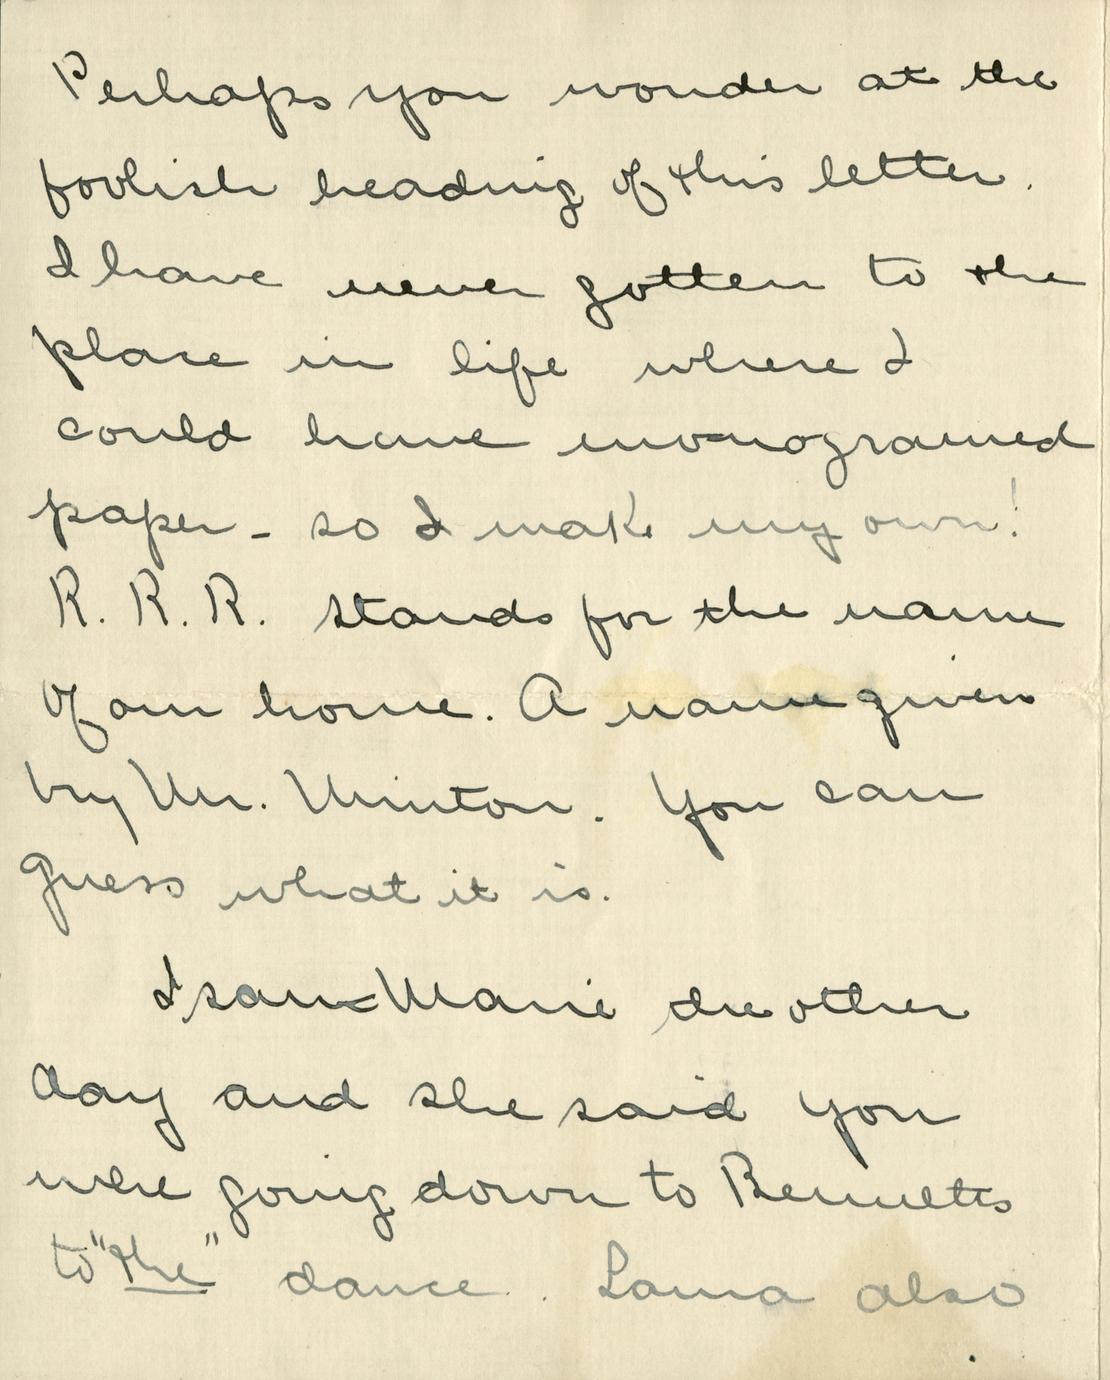 Perhaps you wonder at the
foolish heading of this letter.
I have never gotten to the
place in life where I
could have monogramed
paper - so I make my own!
R. R. R. stands for the name
of our home. A name given
by Mr. Minton. You can
guess what it is.
I saw Marie the other
day and she said you
were going down to Bennetts
to "the" dance. Laura also